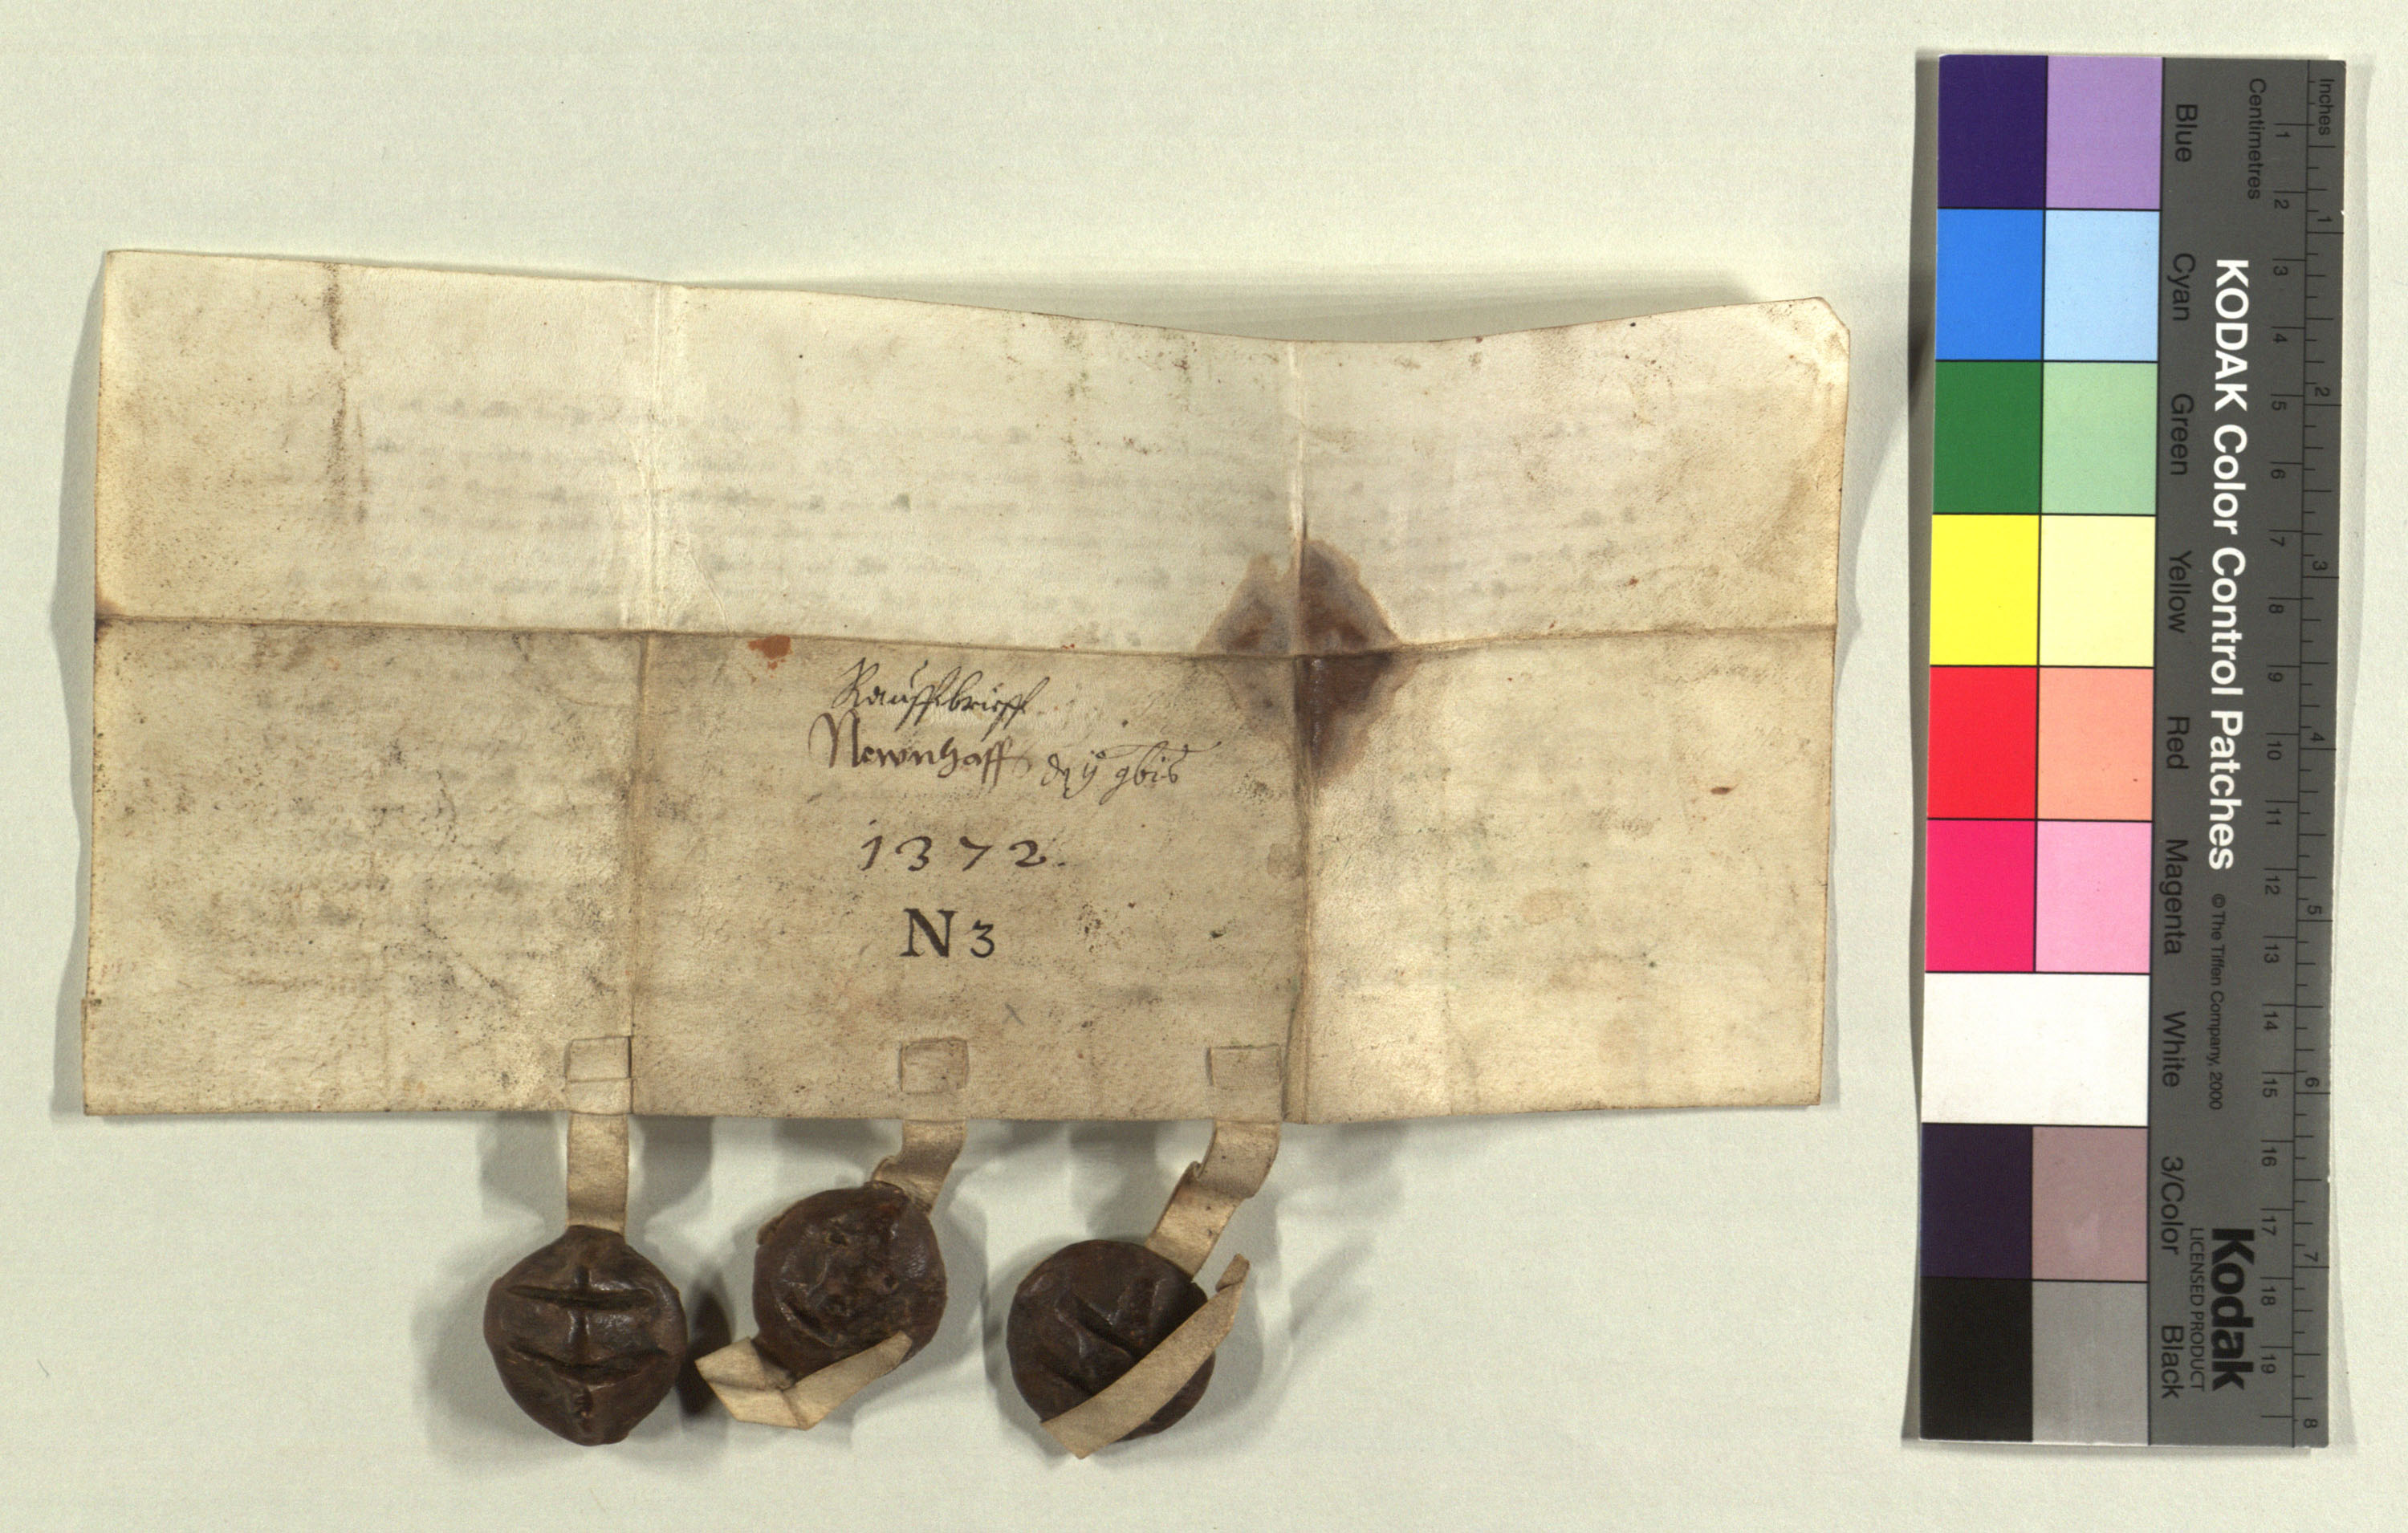 Kauffbrieff
Newnhoff
1372.
N3
Inches
Centimetres
1 2 3 4 5 6 7 8 9 10 11 12 13 14 15 16 17 18 19
1 2 3 4 5 6 7 8
Blue Cyan Green Yellow Red Magenta White 3/Color Black
KODAK Color Control Patches © The Tiffen Company, 2000
Kodak
LICENSED PRODUCT